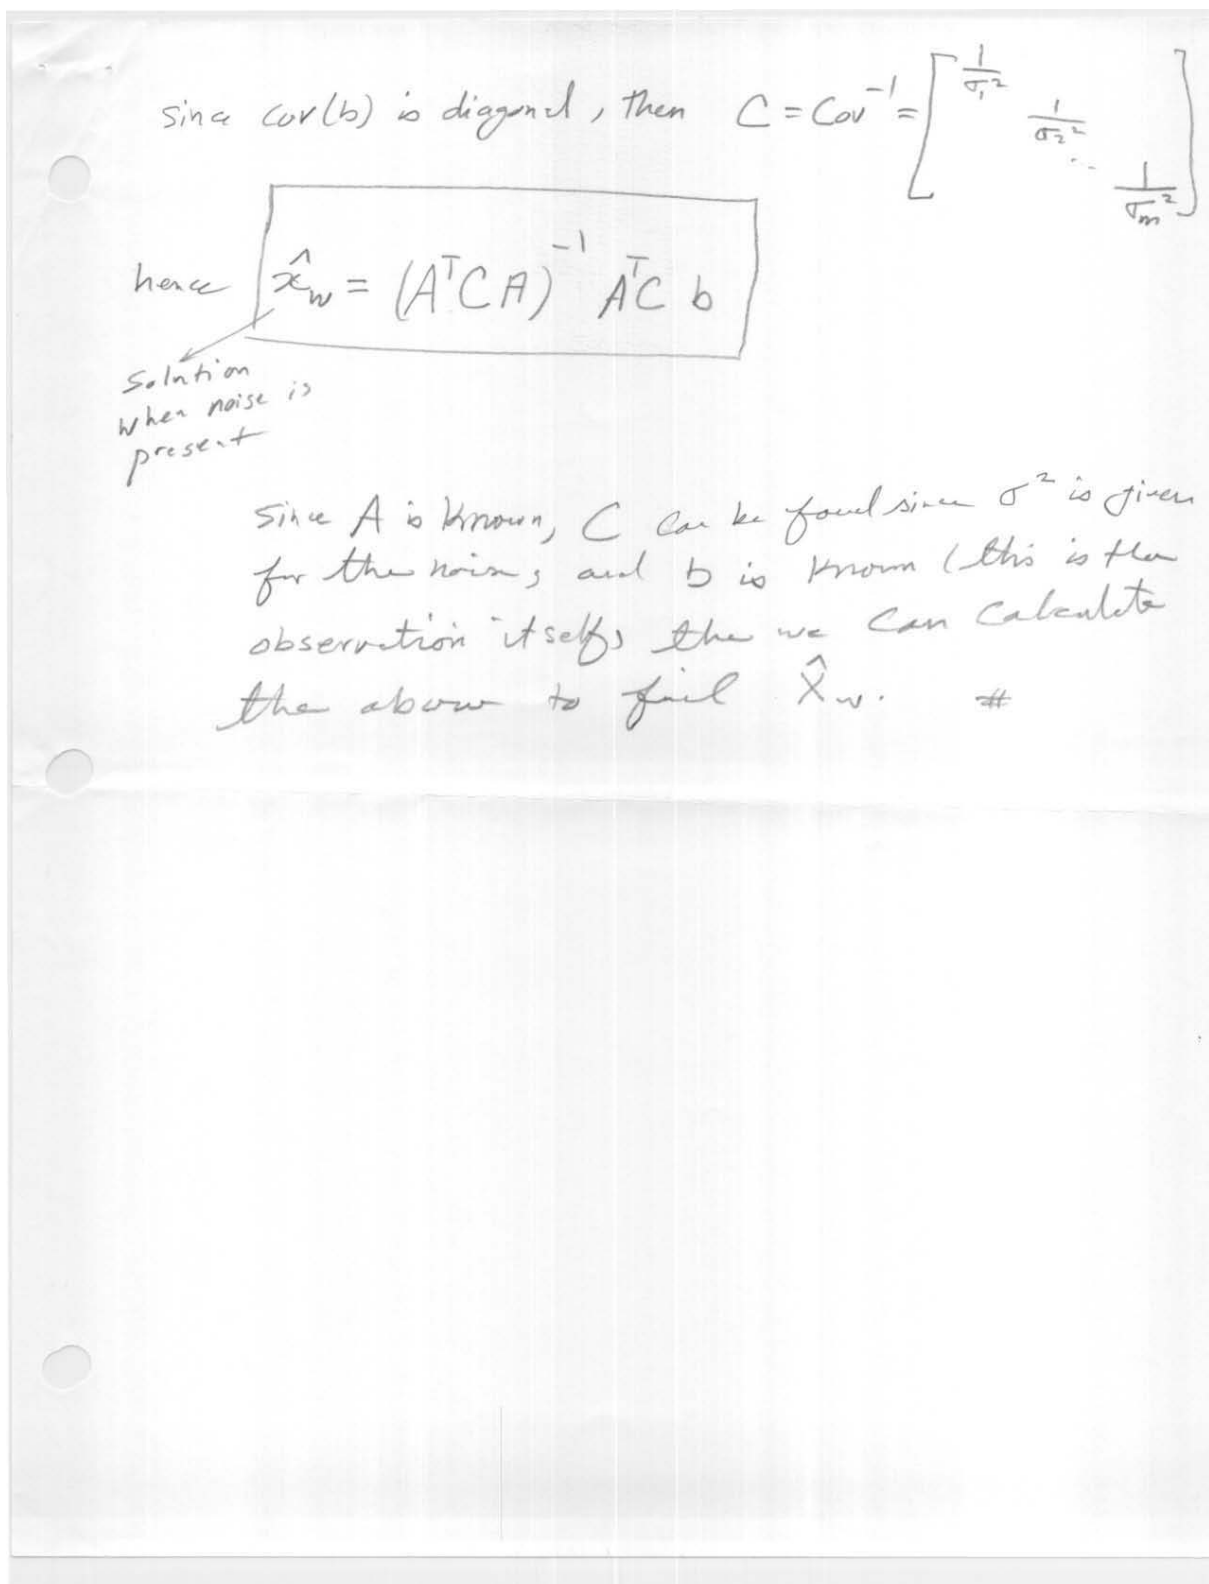 since cov(b) is diagonal, then C = Cov⁻¹ = [ 1/σ₁² 1/σ₂² ... 1/σₘ² ]
hence x̂_w = (AᵀCA)⁻¹ AᵀC b
Solution
when noise is
present
Since A is known, C can be found since σ² is given
for the noise, and b is known (this is the
observation itself) the we can calculate
the above to find x̂_w. #